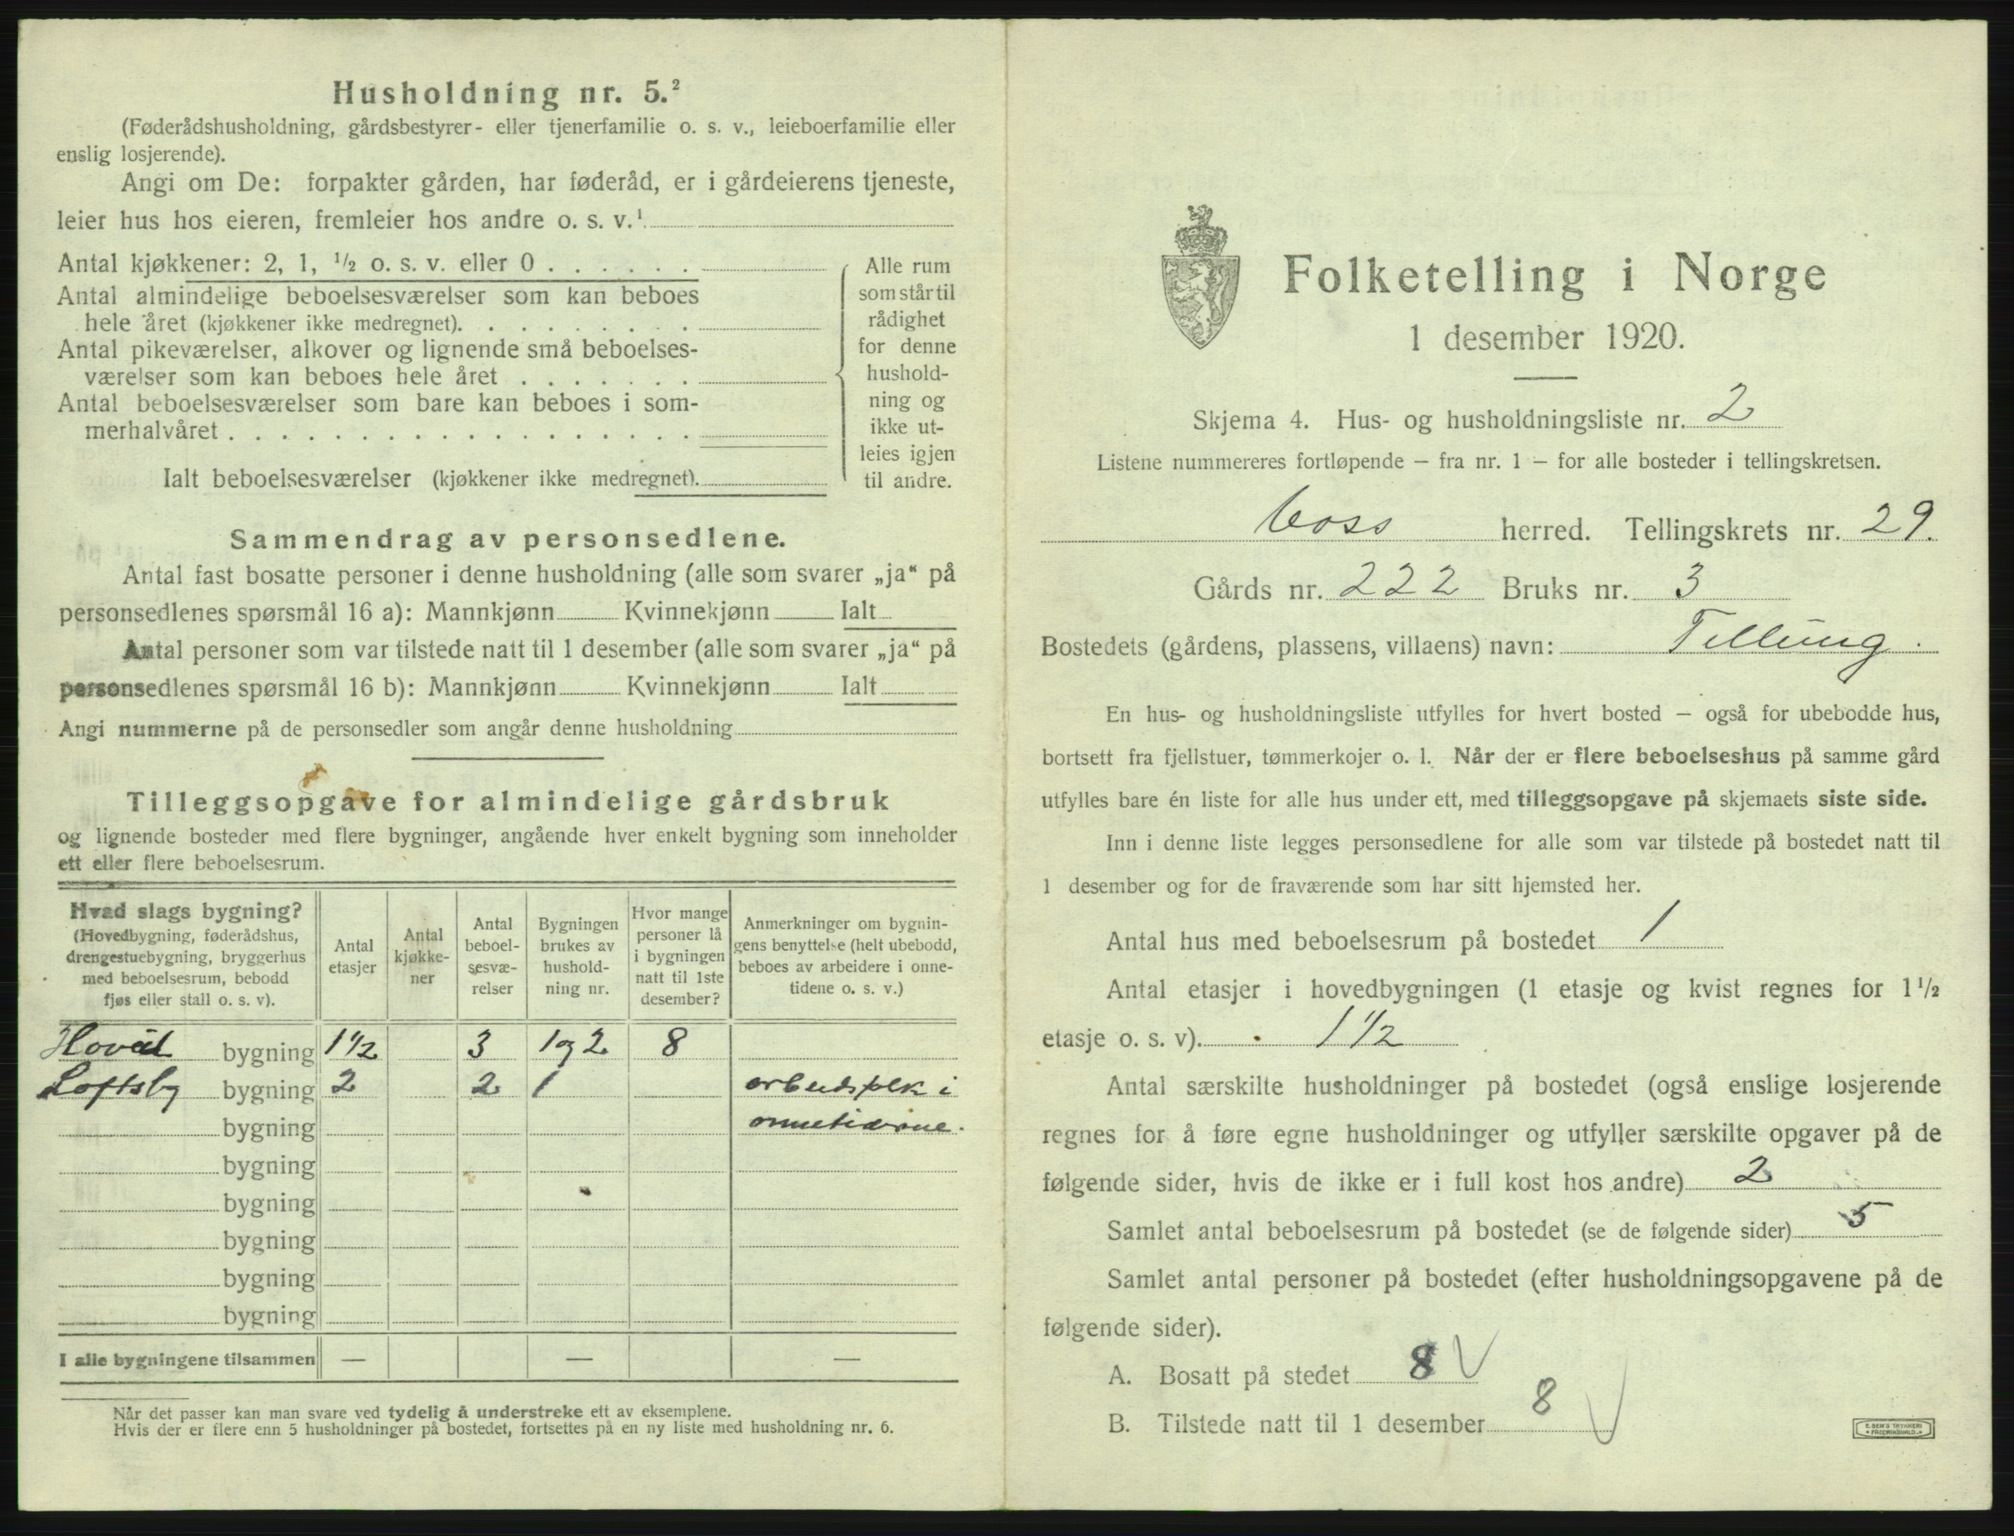 Husholdning nr. 5.²
(Føderådshusholdning, gårdsbestyrer- eller tjenerfamilie o. s. v., leieboerfamilie eller
enslig losjerende).
Angi om De: forpakter gården, har føderåd, er i gårdeierens tjeneste,
leier hus hos eieren, fremleier hos andre o. s. v.¹
Antal kjøkkener: 2, 1, ½ o. s. v. eller 0 . . . . . .
Antal almindelige beboelsesværelser som kan beboes
hele året (kjøkkener ikke medregnet). . . . . . . . .
Antal pikeværelser, alkover og lignende små beboelses-
værelser som kan beboes hele året . . . . . . .
Antal beboelsesværelser som bare kan beboes i som-
merhalvåret . . . . . . . . . . . . . . . . . .
Ialt beboelsesværelser (kjøkkener ikke medregnet).
Alle rum
som står til
rådighet
for denne
hushold-
ning og
ikke ut-
leies igjen
til andre.
Sammendrag av personsedlene.
Antal fast bosatte personer i denne husholdning (alle som svarer „ja“ på
personsedlenes spørsmål 16 a): Mannkjønn Kvinnekjønn Ialt
Antal personer som var tilstede natt til 1 desember (alle som svarer „ja“ på
personsedlenes spørsmål 16 b): Mannkjønn Kvinnekjønn Ialt
Angi nummerne på de personsedler som angår denne husholdning
Tilleggsopgave for almindelige gårdsbruk
og lignende bosteder med flere bygninger, angående hver enkelt bygning som inneholder
ett eller flere beboelsesrum.
Hvad slags bygning?
(Hovedbygning, føderådshus,
drengestuebygning, bryggerhus
med beboelsesrum, bebodd
fjøs eller stall o. s. v).
Antal
etasjer
Antal
kjøkke-
ner
Antal
beboel-
sesvæ-
relser
Bygningen
brukes av
hushold-
ning nr.
Hvor mange
personer lå
i bygningen
natt til 1ste
desember?
Anmerkninger om bygnin-
gens benyttelse (helt ubebodd,
beboes av arbeidere i onne-
tidene o. s. v.)
bygning 1½ 3 1 og 2 8
Loftsby bygning 2 2 1 arbeidsfolk i
bygning onnetiderne.
bygning
bygning
bygning
bygning
bygning
I alle bygningene tilsammen — — —
Når det passer kan man svare ved tydelig å understreke ett av eksemplene.
Hvis der er flere enn 5 husholdninger på bostedet, fortsettes på en ny liste med husholdning nr. 6.
Folketelling i Norge
1 desember 1920.
Skjema 4. Hus- og husholdningsliste nr. 2
Listene nummereres fortløpende — fra nr. 1 — for alle bosteder i tellingskretsen.
Voss herred. Tellingskrets nr. 29.
Gårds nr. 222 Bruks nr. 3
Bostedets (gårdens, plassens, villaens) navn: Tillung.
En hus- og husholdningsliste utfylles for hvert bosted — også for ubebodde hus,
bortsett fra fjellstuer, tømmerkojer o. l. Når der er flere beboelseshus på samme gård
utfylles bare én liste for alle hus under ett, med tilleggsopgave på skjemaets siste side.
Inn i denne liste legges personsedlene for alle som var tilstede på bostedet natt til
1 desember og for de fraværende som har sitt hjemsted her.
Antal hus med beboelsesrum på bostedet 1
Antal etasjer i hovedbygningen (1 etasje og kvist regnes for 1½
etasje o. s. v). 1½
Antal særskilte husholdninger på bostedet (også enslige losjerende
regnes for å føre egne husholdninger og utfyller særskilte opgaver på de
følgende sider, hvis de ikke er i full kost hos andre) 2
Samlet antal beboelsesrum på bostedet (se de følgende sider) 5
Samlet antal personer på bostedet (efter husholdningsopgavene på de
følgende sider).
A. Bosatt på stedet 8 √
B. Tilstede natt til 1 desember 8 √